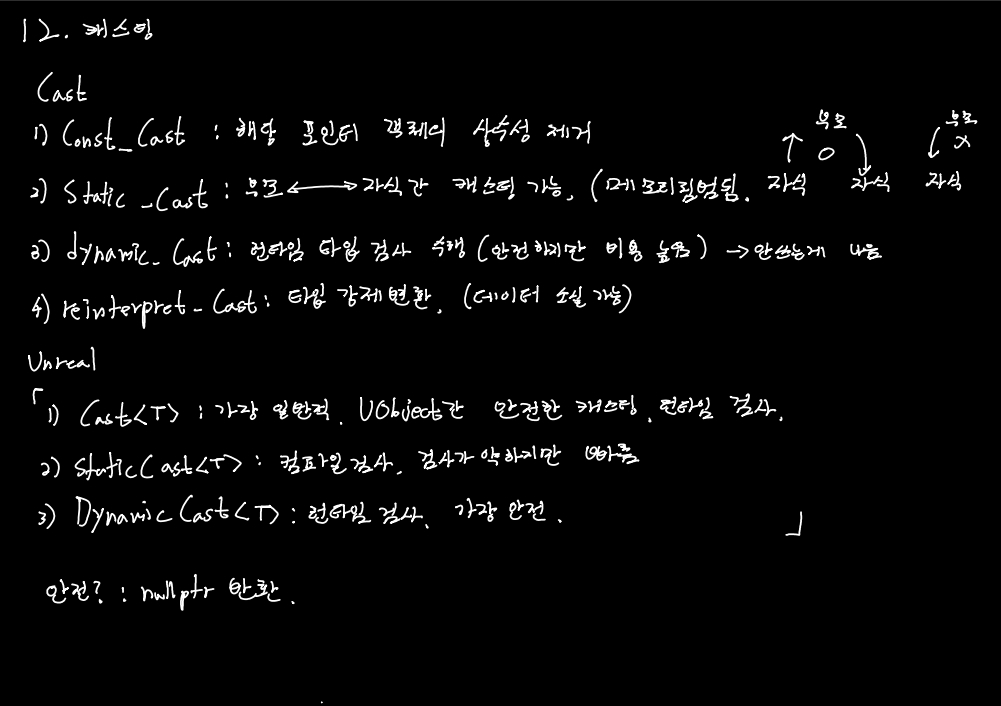 12. 캐스팅
Cast
1) Const_Cast : 해당 포인터 객체의 상수성 제거
부모
O
자식 자식
부모
X
자식
2) Static_Cast : 부모 ↔ 자식간 캐스팅 가능, (메모리릭
3) dynamic_Cast : 런타임 타입 검사 수행 (안전하지만 비용 높음) → 안쓰는게 나음
4) reinterpret_Cast : 타입 강제변환. (데이터 소실 가능)
Unreal
「1) Cast<T> : 가장 일반적. UObject간 안전한 캐스팅. 런타임 검사.
2) StaticCast<T> : 컴파일검사. 검사가 약하지만 빠름
3) DynamicCast<T> : 런타임 검사. 가장 안전. 」
안전? : nullptr 반환.